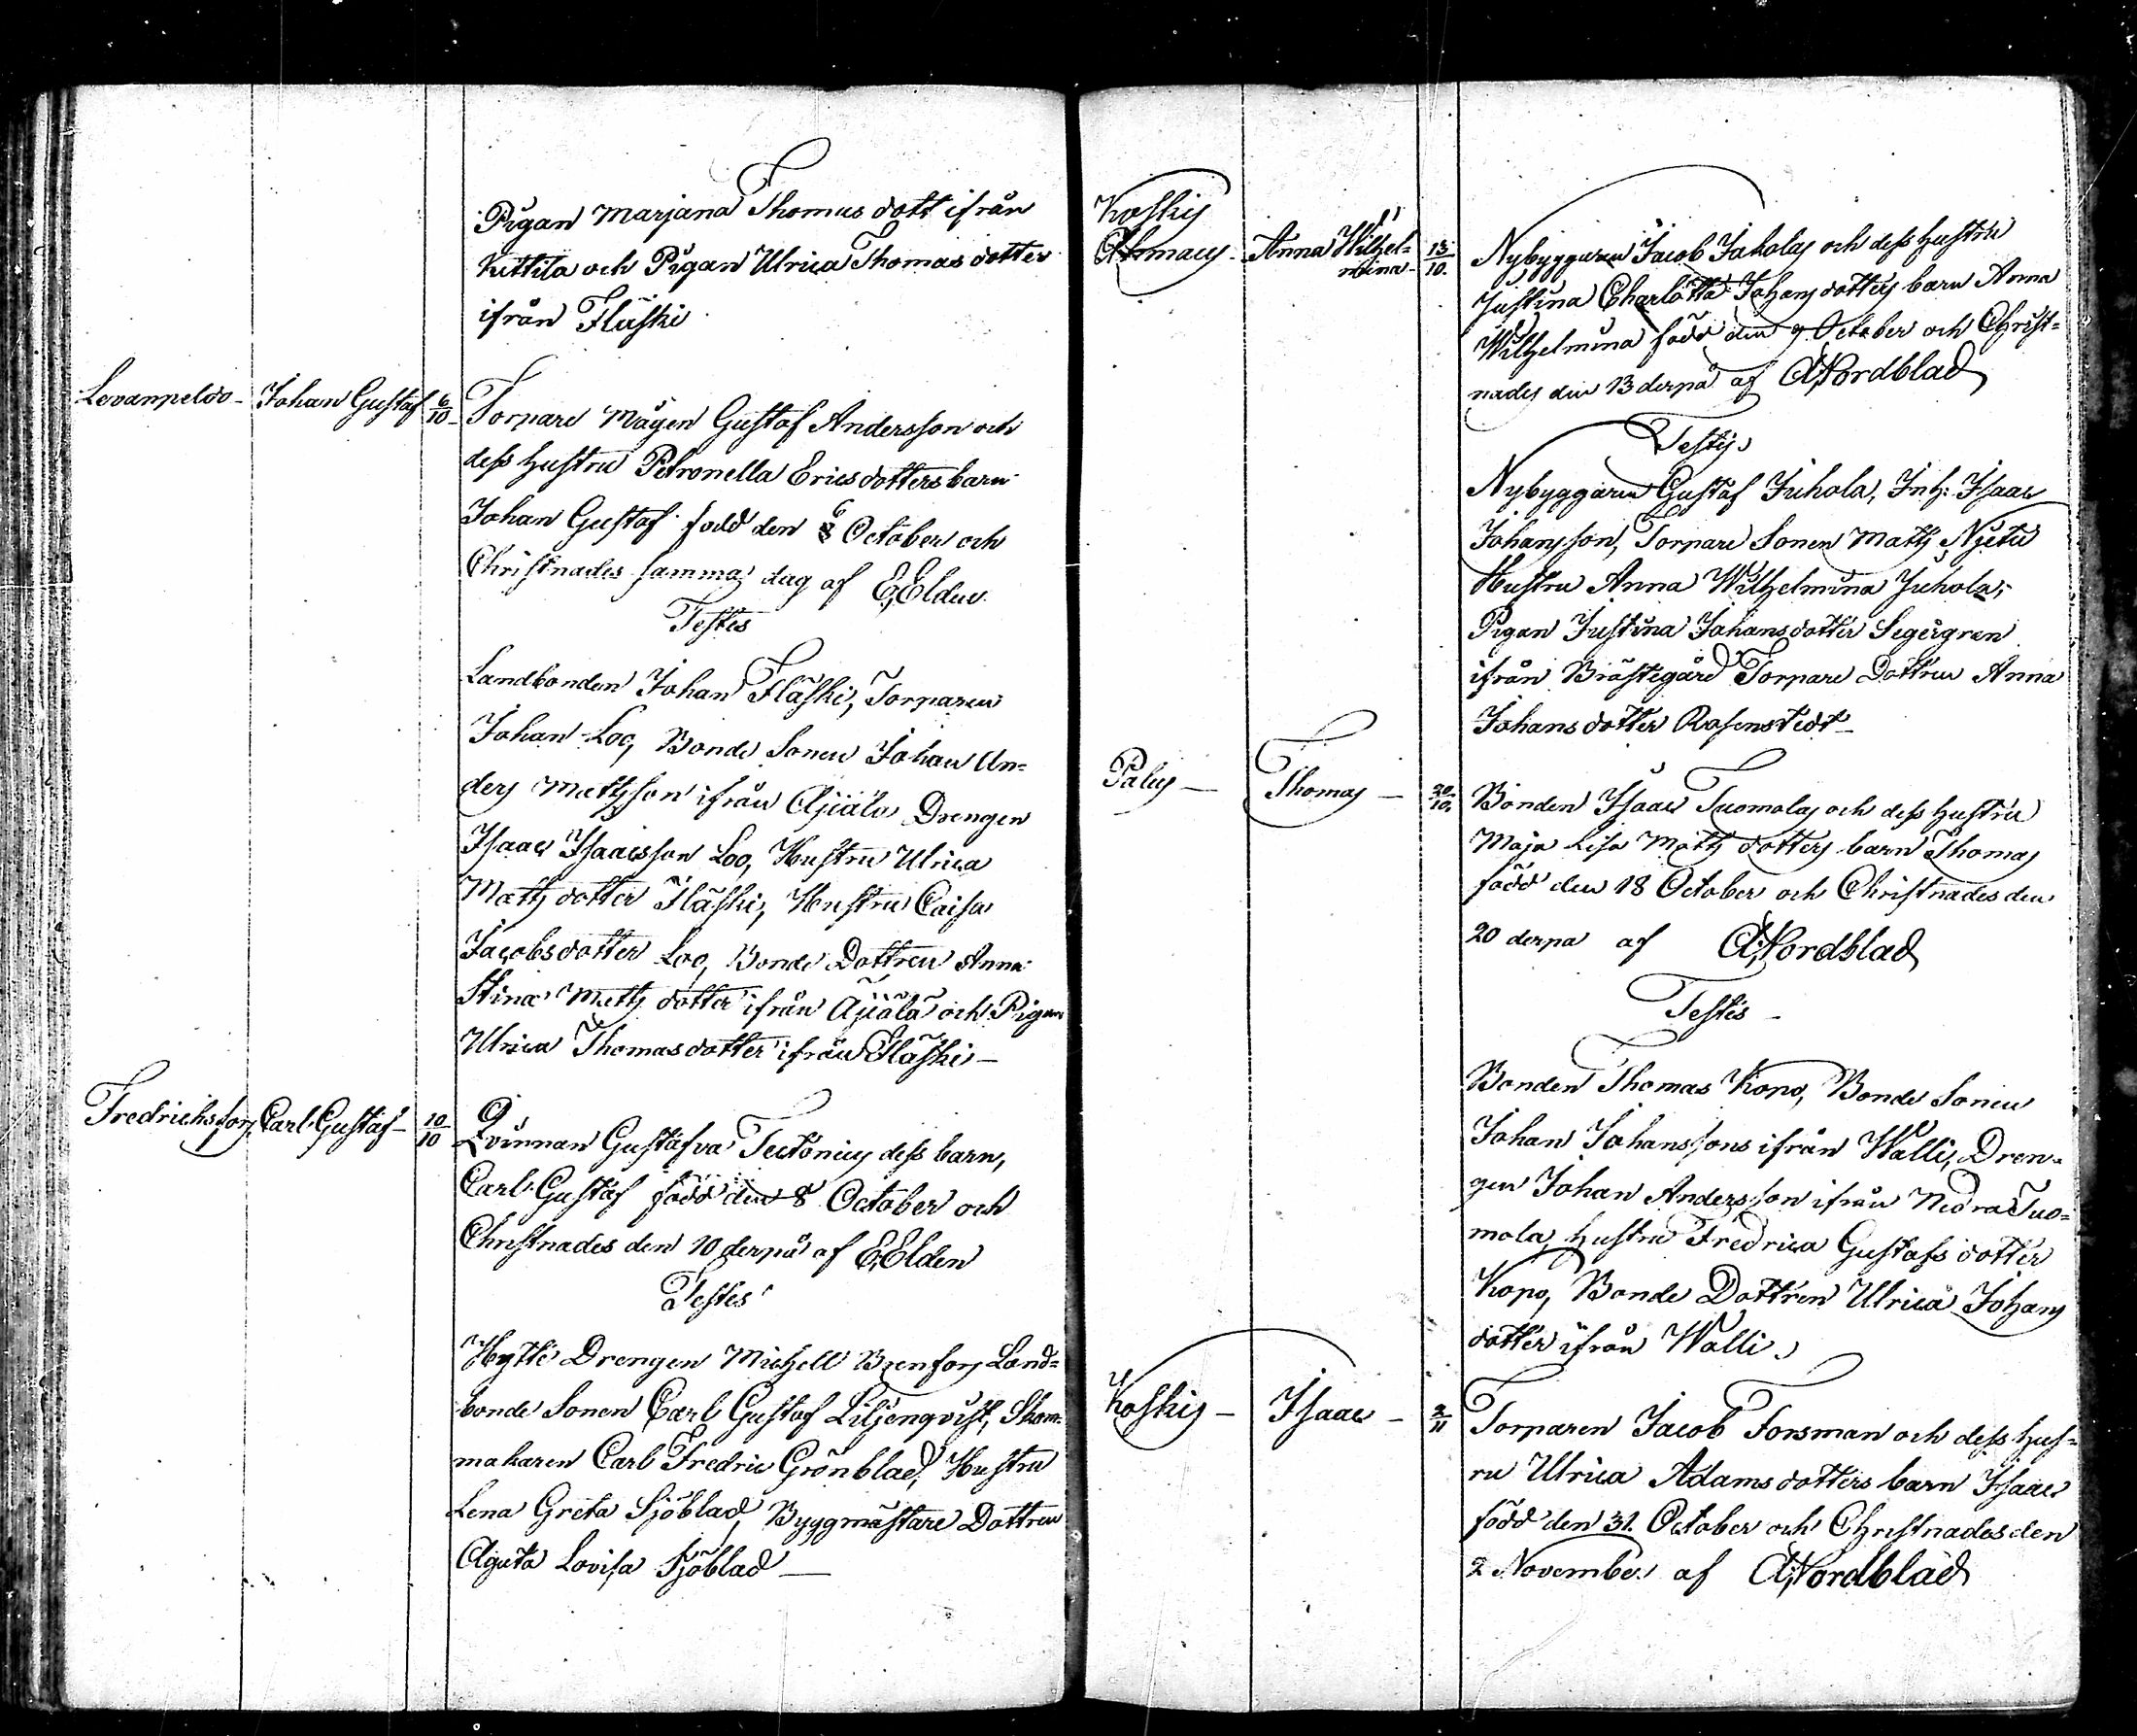 Pigan Marjana Thomas dott ifrån
Kittila och Pigan Ulrica Thomas dotter
ifrån Fläski
Levanpeldo - Johan Gustaf 6/10 Torpare Mågen Gustaf Andersson och
dess hustru Petronella Ericsdotters barn
Johan Gustaf född den 6 October och
Christnades samma dag af E, Elden
Testes
Landbonden Johan Fläski, Torparen
Johan Loo, Bonde Sonen Johan An=
ders Mattsson ifrån Äjälä Drengen
Isaac Isaacsson Loo, Hustru Ulrica
Matts dotter Fläski, Hustru Caisa
Jacobsdotter Loo, Bonde Dottren Anna
Stina Matts dotter ifrån Äjälä och Pigan
Ulrica Thomasdotter ifrån Fläski -
Fredrichsfors, Carl Gustaf - 10/10 Qvinnan Gustafva Tectonius dess barn,
Carl Gustaf född den 8 October och
Christnades den 10 derpå af E, Elden
Testes
Hytte Drengen Michell Brenfors Land=
bonde Sonen Carl Gustaf Liljenqvist, Skom
makaren Carl Fredric Grönblad, Hustru
Lena Greta Sjöblad, Byggmästare Dottren
Agata Lovisa Sjöblad -
Koskis
Anna Wilhel=
mina - 13/10. Nybyggaren Jacob Juholas och dess hustru
Justina Charlotta Johans dotters barn Anna
Wilhelmina född den 7 October och Christ=
nades den 13 derpå af A, Nordblad
Testes
Nybyggaren Gustaf Juhola, Inh: Isaac
Johansson, Torpare Sonen Matts
Hustru Anna Wilhelmina Juhola,
Pigan Justina Johansdotter Segergren
ifrån Prästegård Torpare Dottren Anna
Johansdotter Rosenstedt -
Palus - Thomas - 20/10. Bonden Isaac Tuomolas och dess hustru
Maja Lisa Matts dotters barn Thomas
född den 18 October och Christnades den
20 derpa af A, Nordblad
Testes -
Bonden Thomas Kopo, Bonde Sonen
Johan Johanssons ifrån Walli, Dren=
gen Johan Andersson ifrån Nedra Tuo=
mola, Hustru Fredrica Gustafs dotter
Kopo, Bonde Dottren Ulrica Johans
dotter ifrån Walli.
Koskis - Isaac - 2/11 Torparen Jacob Forsman och dess hus=
ru Ulrica Adams dotters barn Isaac
född den 31. October och Christnades den
2 November af A, Nordblad